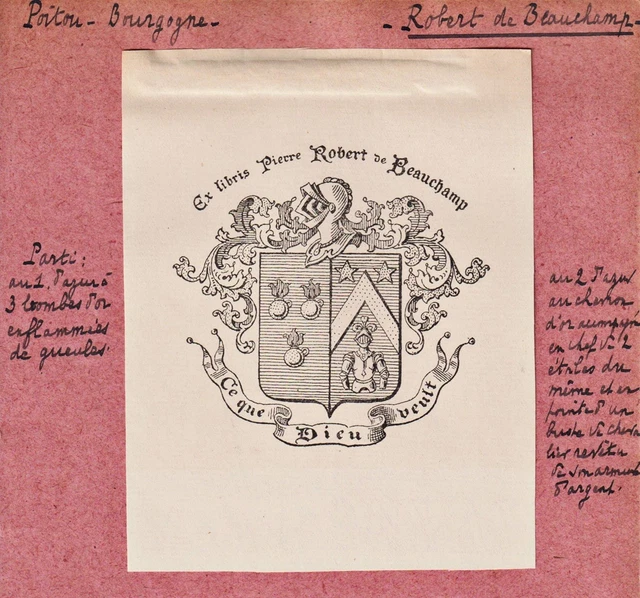 Poitou - Bourgogne -
- Robert de Beauchamp -
Ex libris Pierre Robert de Beauchamp
Parti:
au 1, d'azur à
3 bombes d'or
enflammées
de gueules.
au 2 d'azur
au chevron
d'or accompagné
en chef de 2
étoiles du
même et en
pointe d'un
buste de cheva
lier revêtu
de son armure
d'argent.
Ce que Dieu veult